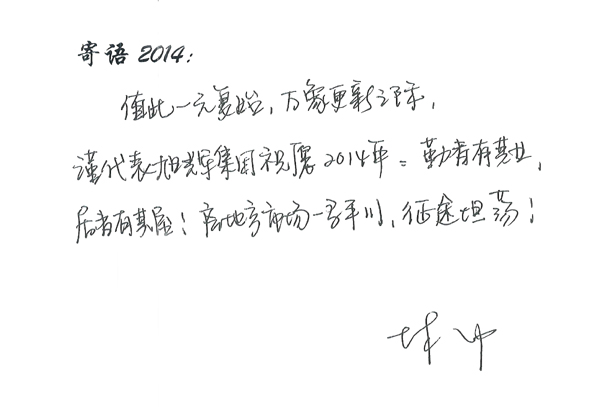 寄语 2014：
值此一元复始，万象更新之际，
谨代表旭辉集团祝愿2014年：勤者有其业，
居者有其屋！房地产市场一马平川，征途坦荡！
林中